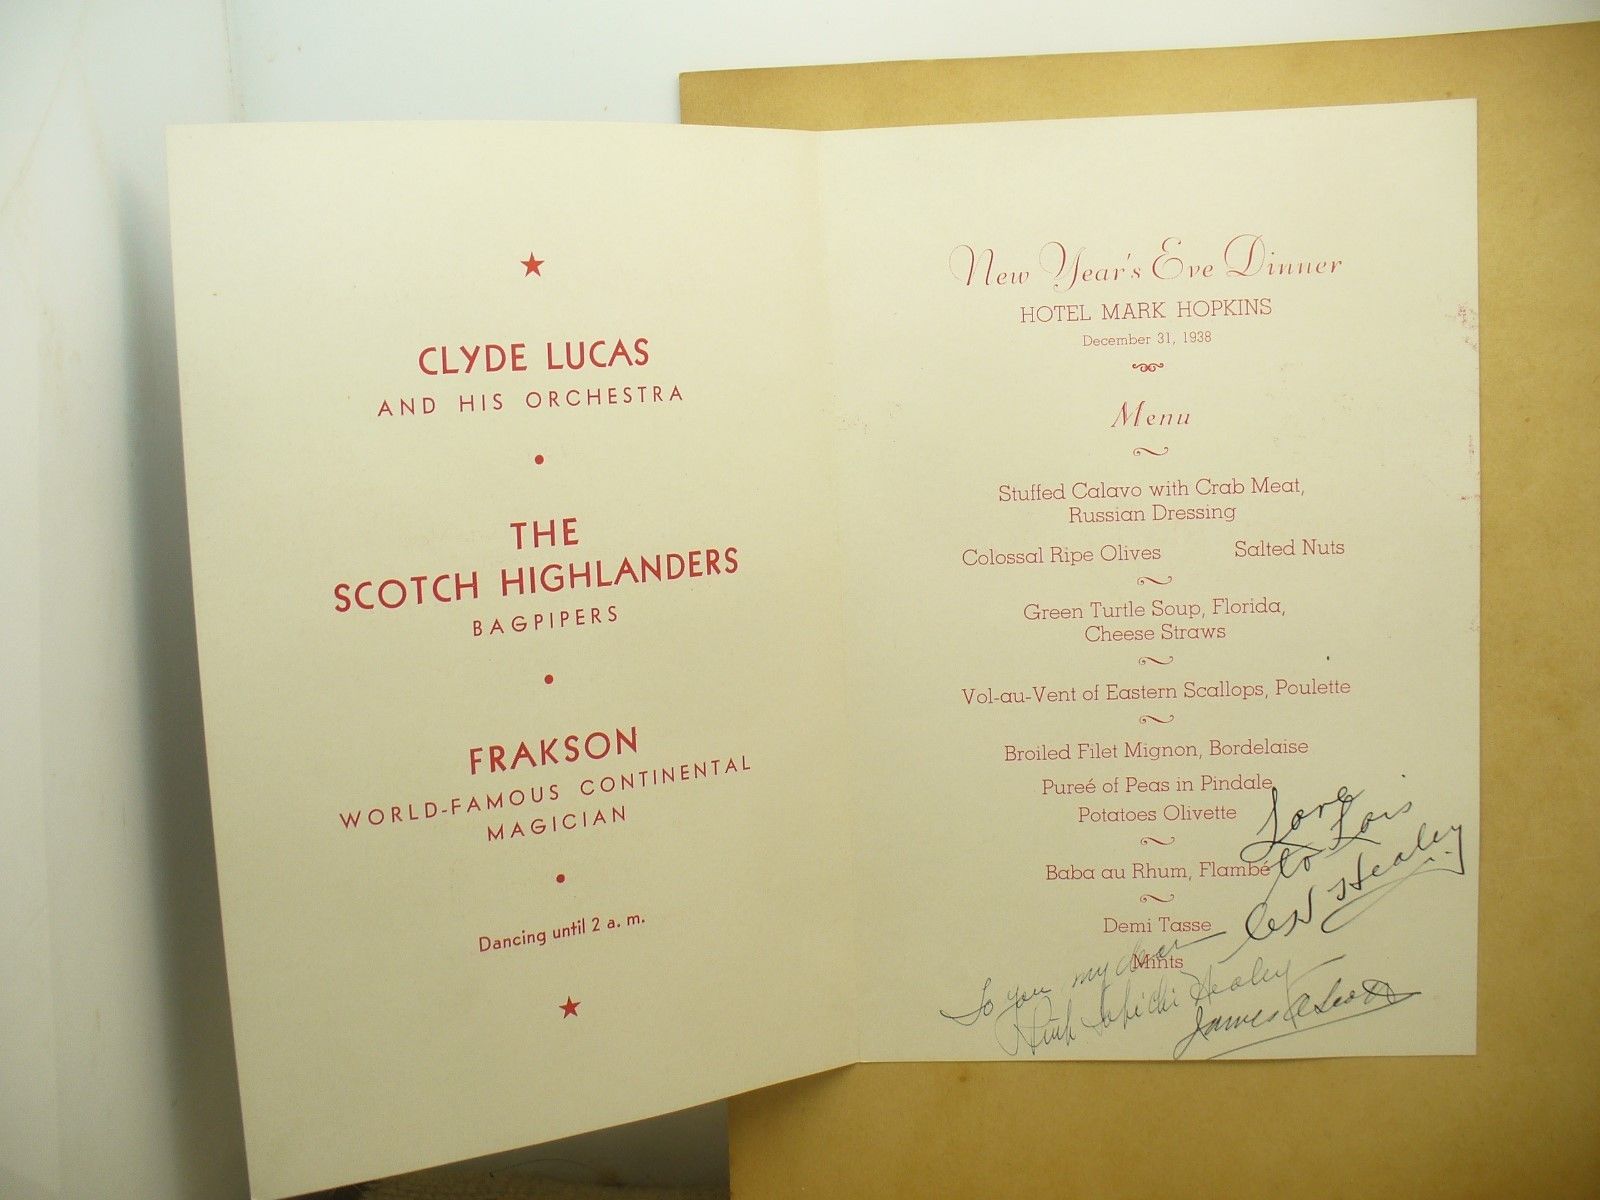 CLYDE LUCAS
AND HIS ORCHESTRA
THE
SCOTCH HIGHLANDERS
BAGPIPERS
FRAKSON
WORLD-FAMOUS CONTINENTAL
MAGICIAN
Dancing until 2 a. m.
New Year's Eve Dinner
HOTEL MARK HOPKINS
December 31, 1938
Menu
Stuffed Calavo with Crab Meat,
Russian Dressing
Colossal Ripe Olives Salted Nuts
Green Turtle Soup, Florida,
Cheese Straws
Vol-au-Vent of Eastern Scallops, Poulette
Broiled Filet Mignon, Bordelaise
Pureé of Peas in Pindale
Potatoes Olivette
Baba au Rhum, Flambé
Demi Tasse
Mints
Love
to Lois
Healey
To you my dear
Healey
James